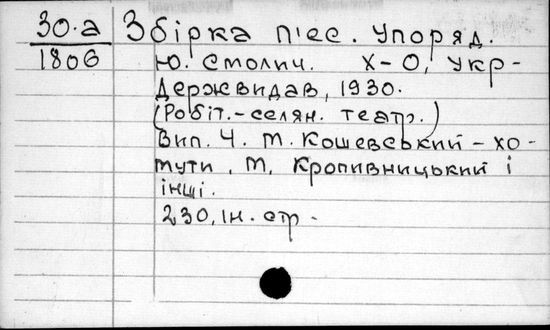 30.а
1806
Збірка п'єс. Упоряд.
Ю. Смолич. Х-О, Укр-
Держвидав, 1930.
(Робіт.-селян. театр.)
Вип. 4. М. Кошевський – хо-
мути, М. Кропивницький і
інші.
230, ін. стр.